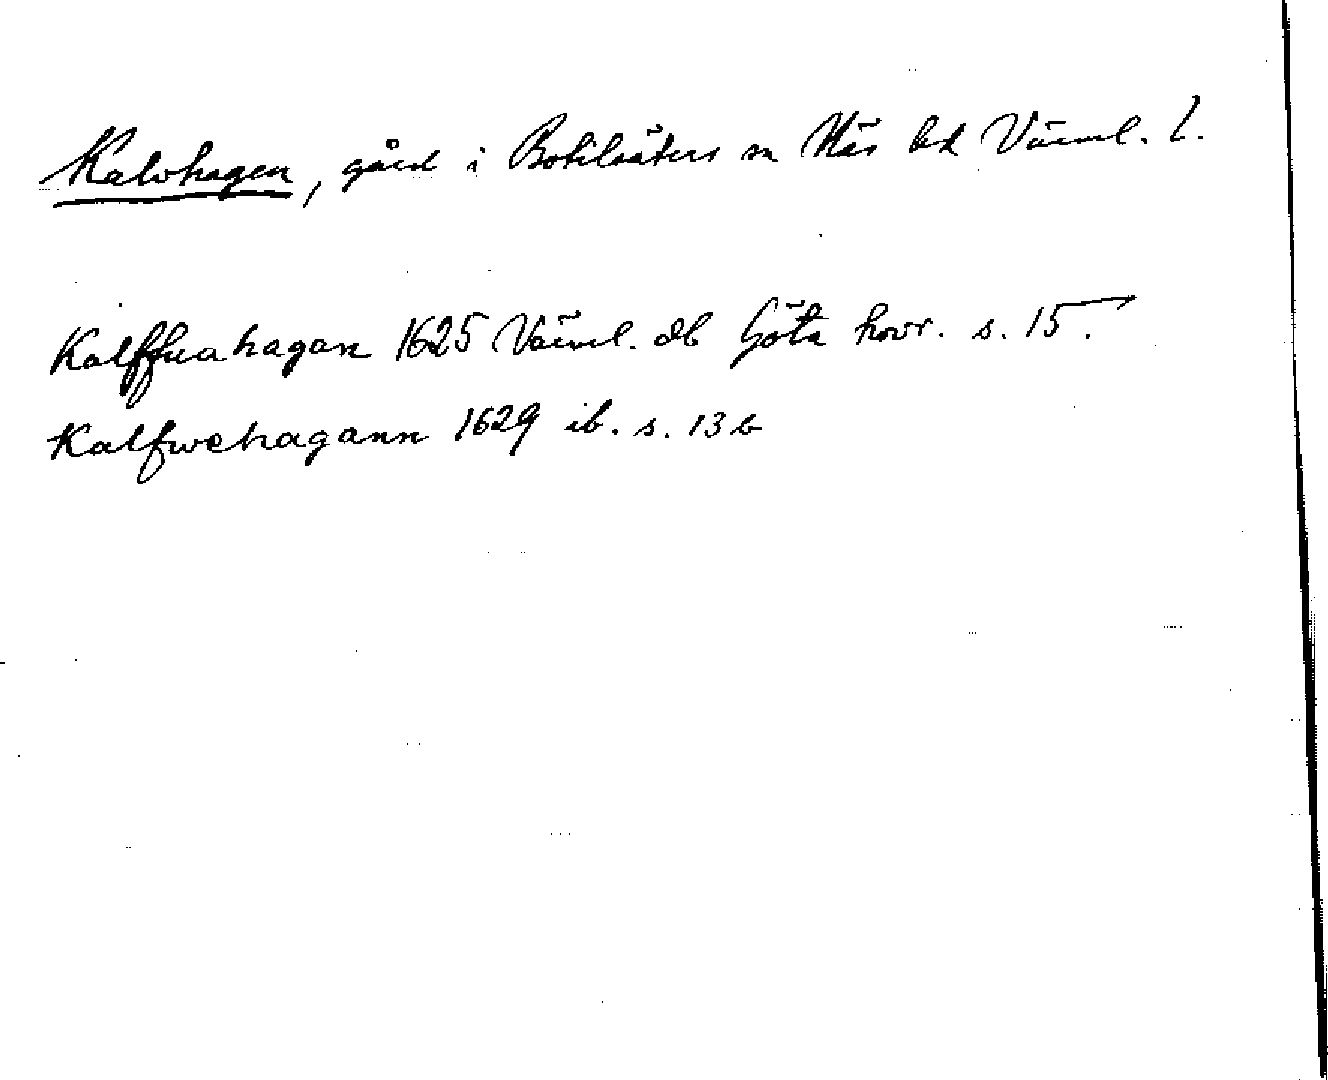 Kalvhagen, gård i Botilsäters sn Näs hd Värml. l.
Kalffuahagan 1625 Värml. db Göta hovr. s. 15.
Kalfwehagann 1629 ib. s. 13 b